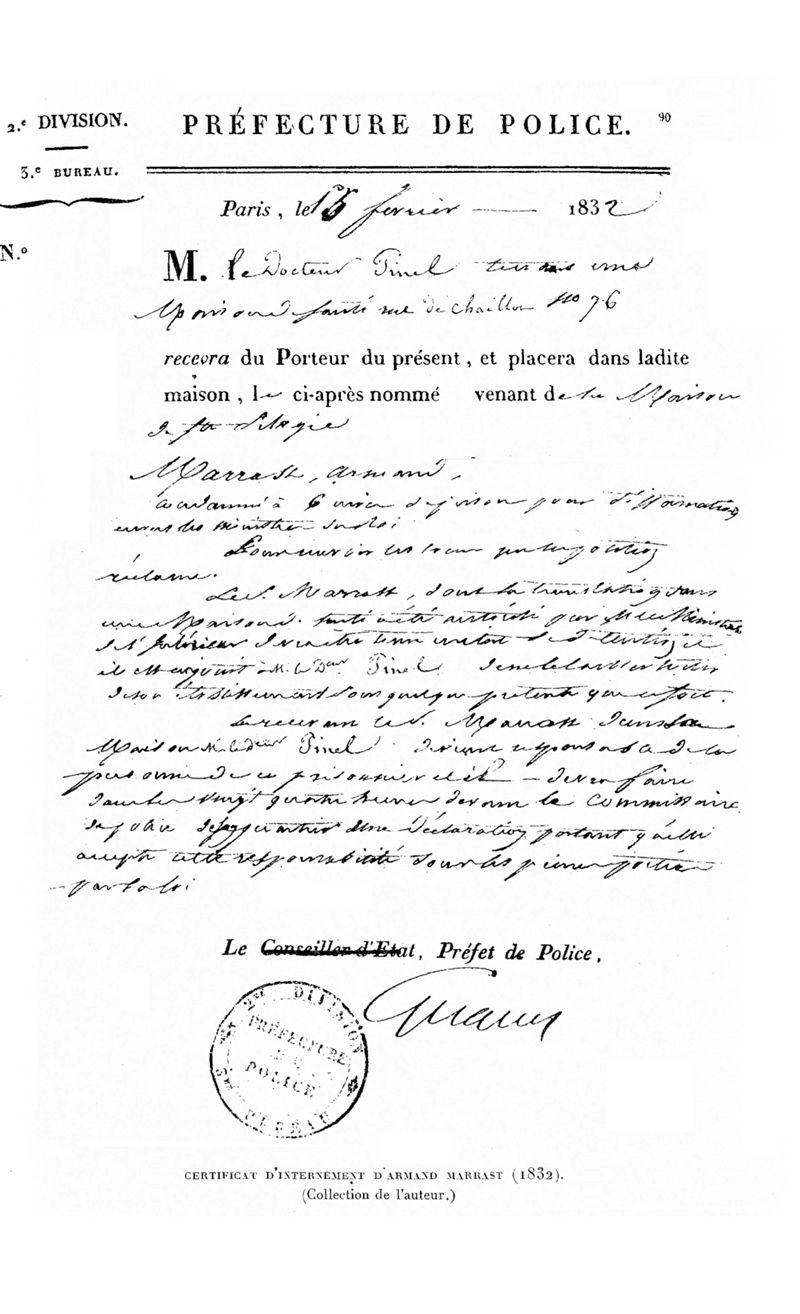 2.e DIVISION.
PRÉFECTURE DE POLICE.
90
3.e BUREAU.
Paris, le 15 fevrier 1832
N.o
M. le Docteur Pinel tenant une
Maison de santé rue de Chaillou no 76
recevra du Porteur du présent, et placera dans ladite
maison, le ci-après nommé venant de la Maison
de Ste Pelagie
Marrast, Armand,
condamné à 6 mois de prison pour diffamation
envers les Ministres du Roi
réclame.
Le S. Marrast, dont la translation dans
une Maison de santé a été autorisée par M. le Ministre
de l'Intérieur
il est enjoint à M. le Dr Pinel de ne le laisser sortir
de son établissement sous quelque prétexte que ce soit.
Le recevant le S. Marrast dans sa
Maison M. le Docr Pinel devient responsable de la
personne de ce prisonnier et il devra faire
dans les vingt quatre heures devant le Commissaire
de police du quartier une déclaration portant qu'il
accepte cette responsabilité sous les peines portées
par la loi
Le Conseiller d'Etat, Préfet de Police,
2me DIVISION
PRÉFECTURE
DE
POLICE
BUREAU
CERTIFICAT D'INTERNEMENT D'ARMAND MARRAST (1832).
(Collection de l'auteur.)